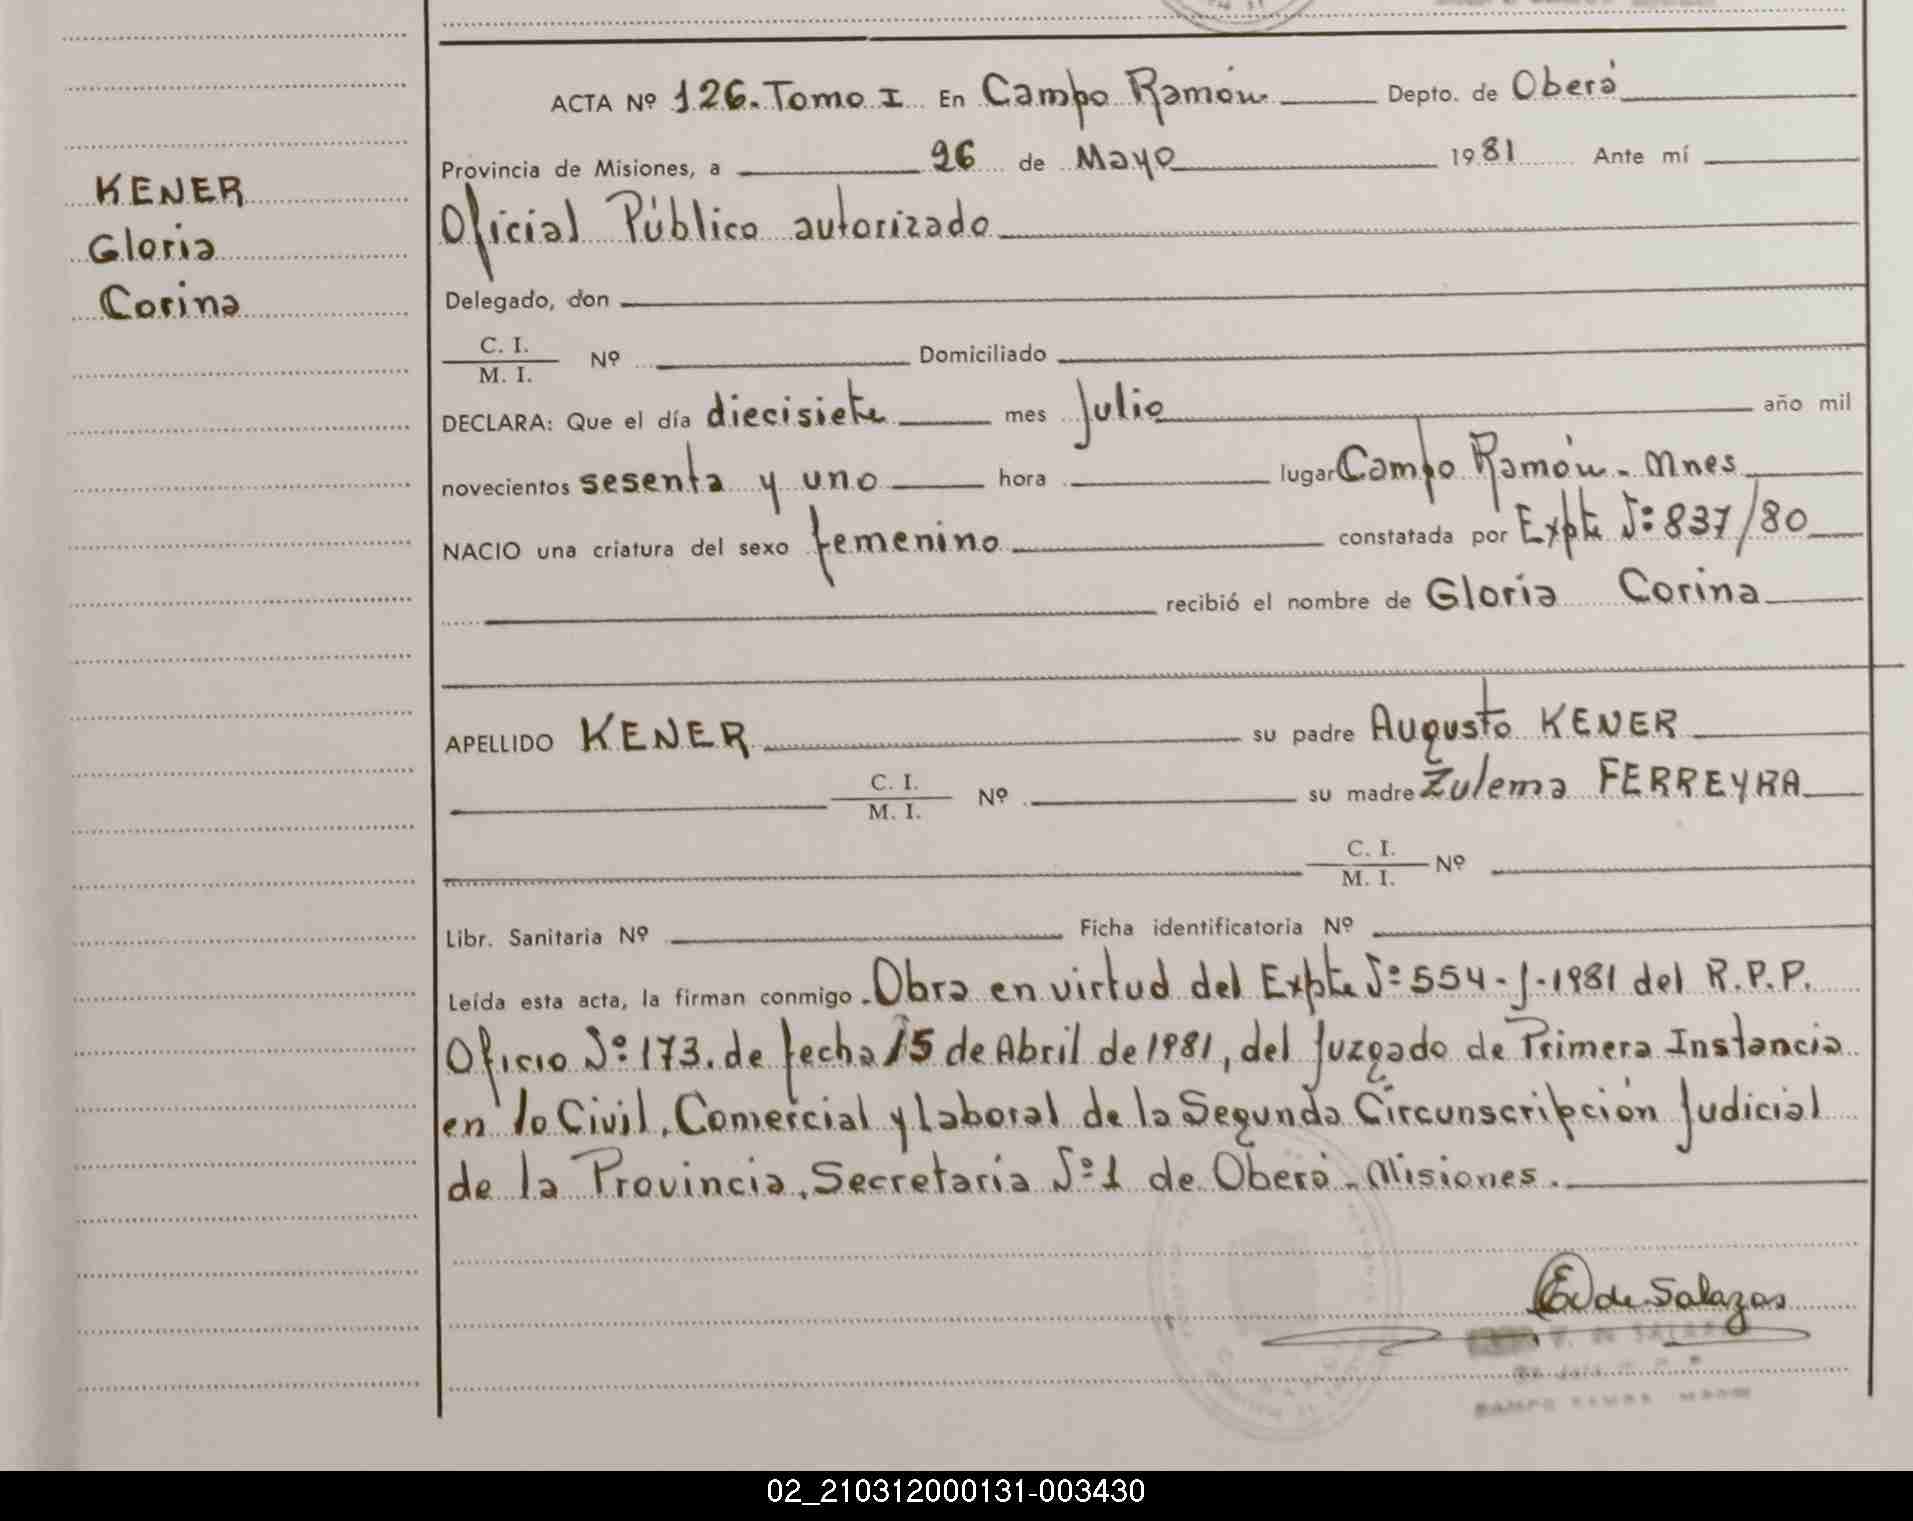 ACTA Nº 126. Tomo I En Campo Ramón Depto. de Oberá
Provincia de Misiones, a 26 de Mayo 1981 Ante mí
KENER
Oficial Público autorizado
Gloria
Corina
Delegado, don
C. I.
M. I. Nº Domiciliado
DECLARA: Que el día diecisiete mes Julio año mil
novecientos sesenta y uno hora lugar Campo Ramón - Mnes
NACIO una criatura del sexo femenino constatada por Expte Nº 837/80
recibió el nombre de Gloria Corina
APELLIDO KENER su padre Augusto KENER
C. I.
M. I. Nº su madre Zulema FERREYRA
C. I.
M. I. Nº
Libr. Sanitaria Nº Ficha identificatoria Nº
Leída esta acta, la firman conmigo. Obra en virtud del Expte Nº 554-J-1981 del R.P.P.
Oficio Nº 173. de fecha 15 de Abril de 1981, del Juzgado de Primera Instancia
en lo Civil, Comercial y Laboral de la Segunda Circunscripción Judicial
de la Provincia, Secretaría Nº 1 de Oberá - Misiones.
de Salazar
02_210312000131-003430